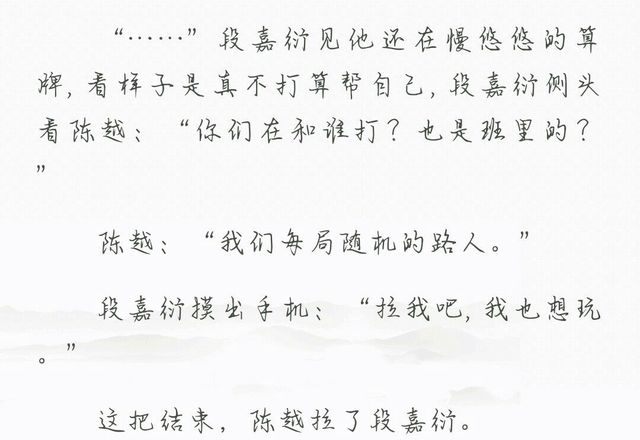 “……”段嘉衍见他还在慢悠悠的算
牌，看样子是真不打算帮自己，段嘉衍侧头
看陈越：“你们在和谁打？也是班里的？
”
陈越：“我们每局随机的路人。”
段嘉衍摸出手机：“拉我吧，我也想玩
。”
这把结束，陈越拉了段嘉衍。